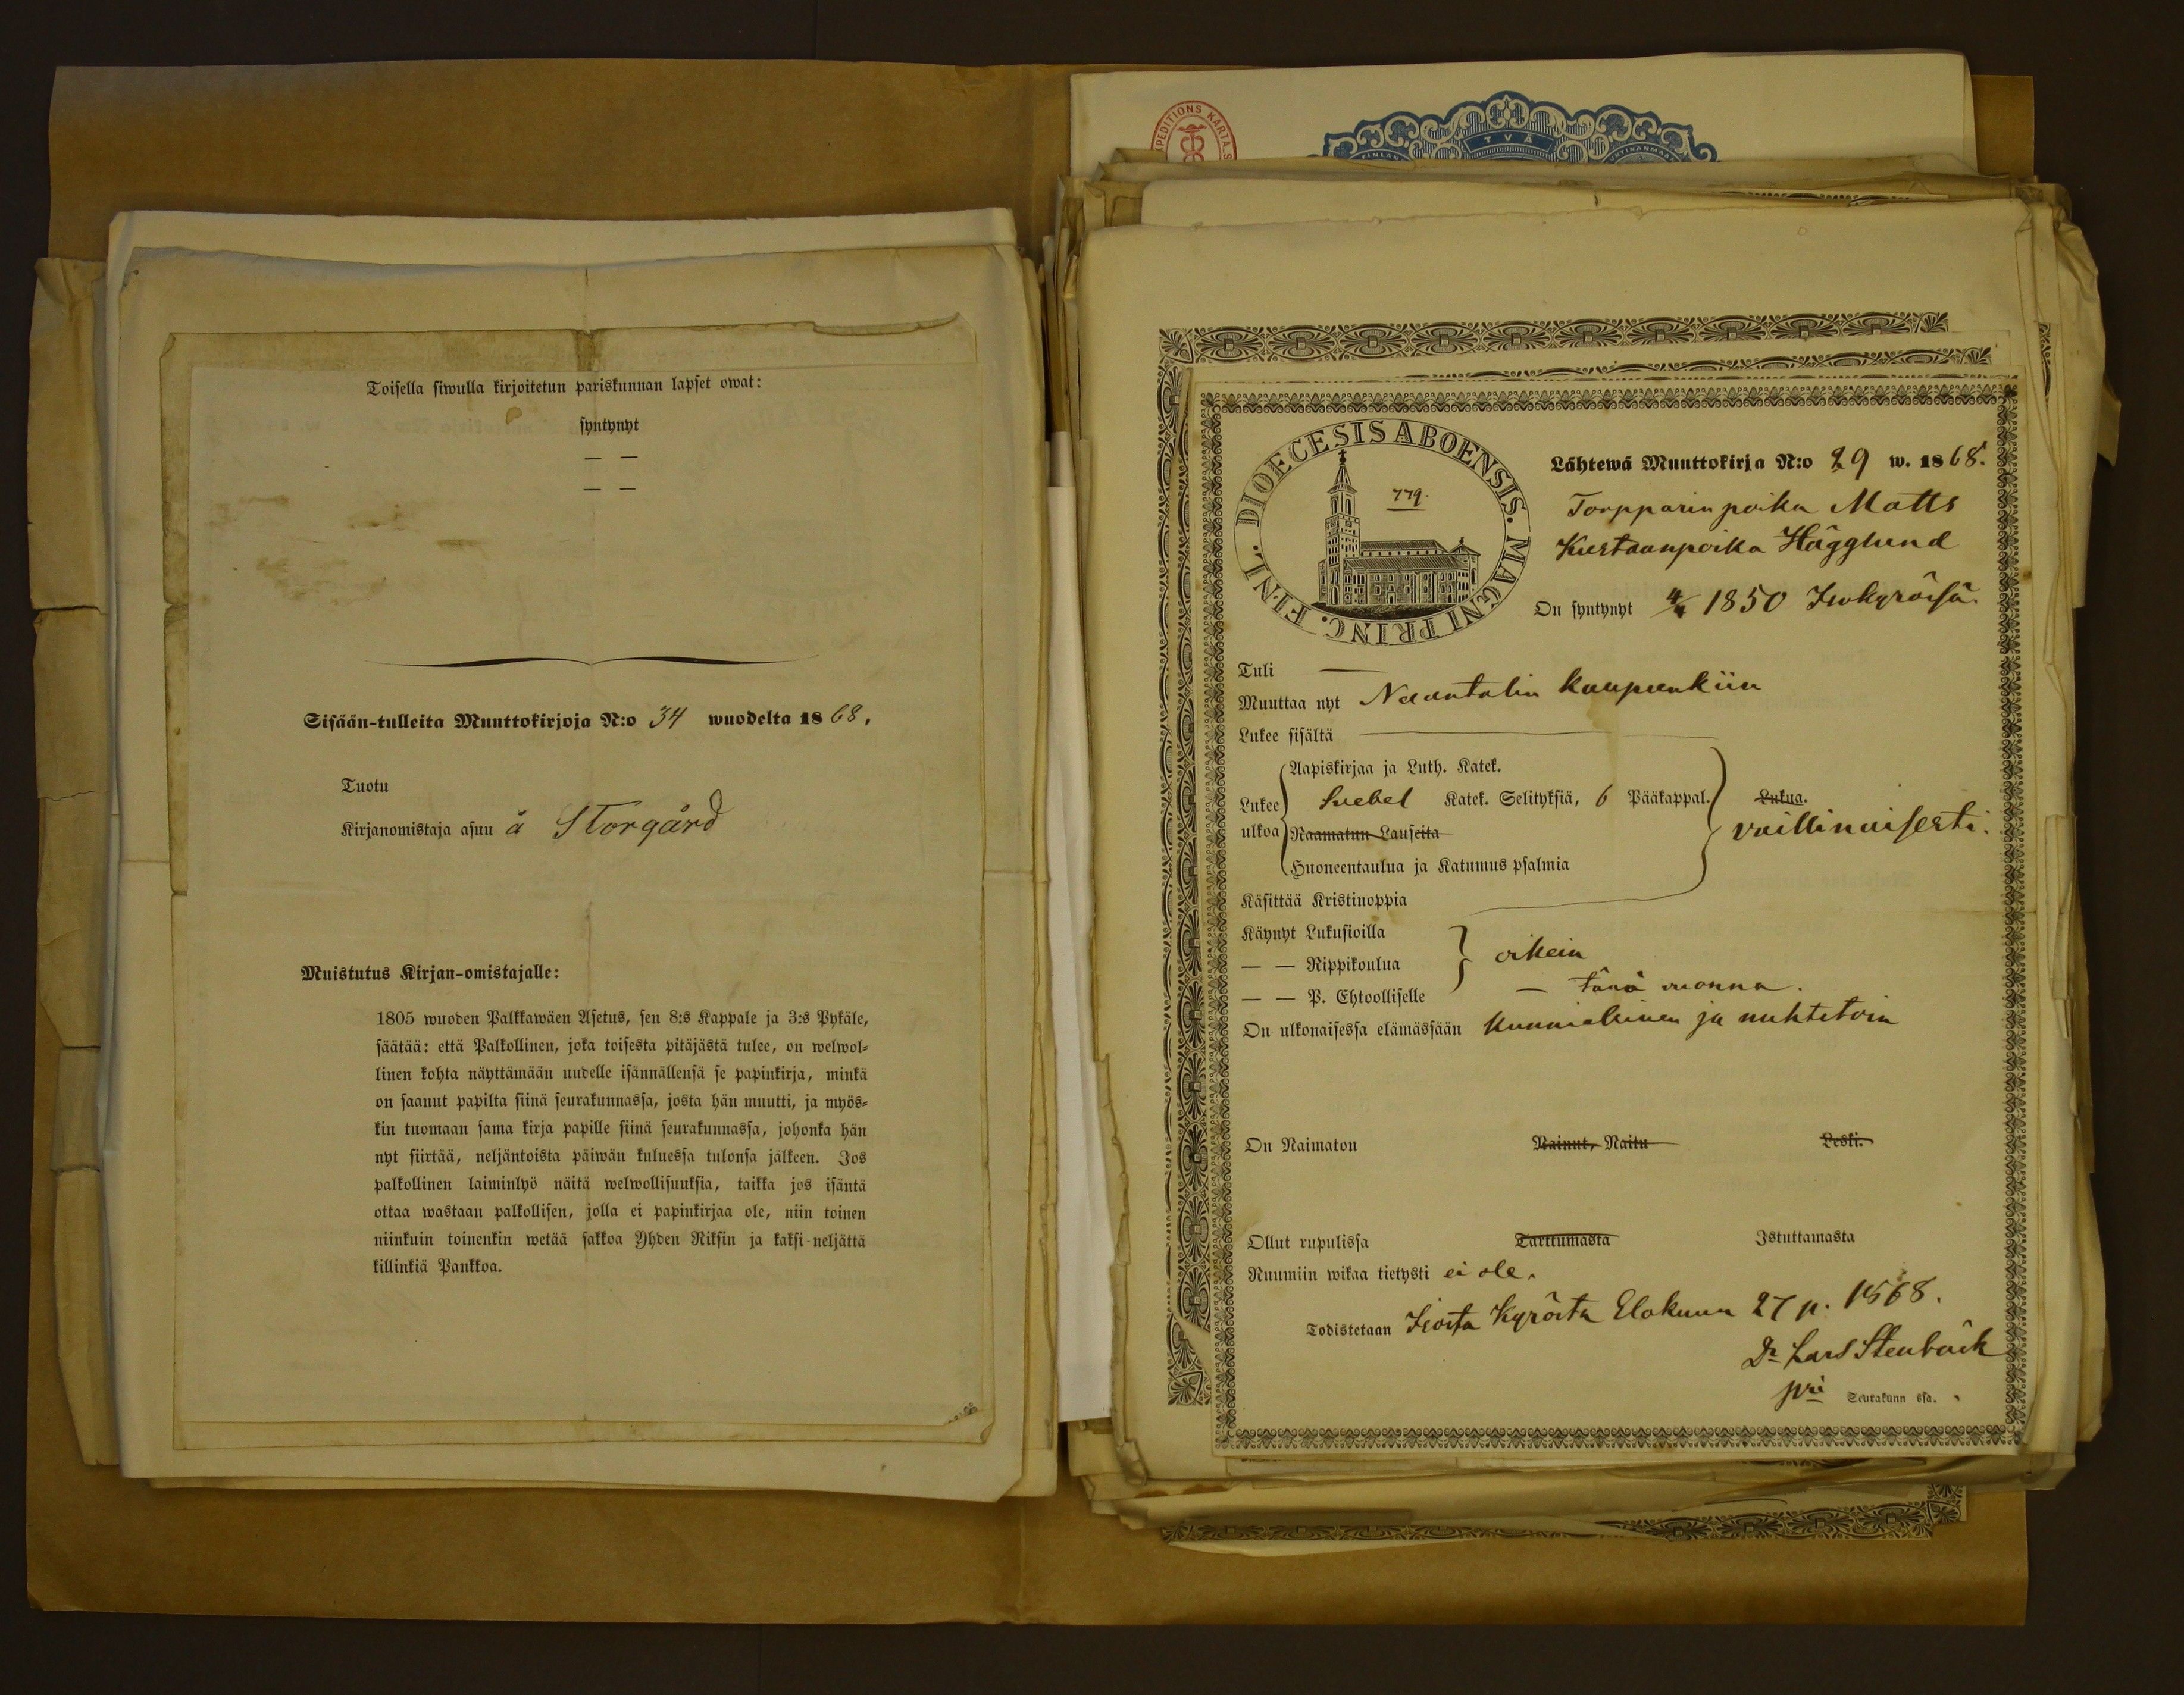 Toisella siwulla kirjoitetun pariskunnan lapset owat:
syntynyt
— —
— —
Sisään-tulleita Muuttokirjoja N:o 34 wuodelta 1868.
Tuotu
Kirjanomistaja asuu å Storgård
Muistutus Kirjan-omistajalle:
1805 wuoden Palkkawäen Asetus, sen 8:s Kappale ja 3:s Pykäle,
säätää: että Palkollinen, joka toisesta pitäjästä tulee, on welwol-
linen kohta näyttämään uudelle isännällensä se papinkirja, minkä
on saanut papilta siinä seurakunnassa, josta hän muutti, ja myös-
kin tuomaan sama kirja papille siinä seurakunnassa, johonka hän
nyt siirtää, neljäntoista päiwän kuluessa tulonsa jälkeen. Jos
palkollinen laiminlyö näitä welwollisuuksia, taikka jos isäntä
ottaa wastaan palkollisen, jolla ei papinkirjaa ole, niin toinen
niinkuin toinenkin wetää sakkoa Yhden Riksin ja kaksi neljättä
killinkiä Pankkoa.
EXPEDITIONS KARTA.S
TVÅ
DIOECESIS ABOENSIS. MAGNI PRINC. FINL.
779.
Lähtewä Muuttokirja N:o 29 w. 1868.
Torpparin poika Matts
Kustaanpoika Hägglund
On syntynyt 1850 Isokyrössä.
Tuli —
Muuttaa nyt Naantalin kaupunkiin
Lukee sisältä
Aapiskirjaa ja Luth. Katek.
Lukee Svebel Katek. Selityksiä, 6 Pääkappal. Lukua.
ulkoa Raamatun Lauseita vaillinaisesti.
Huoneentaulua ja Katumus psalmia
Käsittää Kristinoppia
Käynyt Lukusioilla
— — Rippikoulua oikein
— — P. Ehtoolliselle — tänä vuonna.
On ulkonaisessa elämässään kunniallinen ja nuhtetoin
On Naimaton Nainut, Naitu Leski.
Ollut rupulissa Tarttumasta Istuttamasta
Ruumiin wikaa tietysti ei ole.
Todistetaan Isosta Kyröstä Elokuun 27 p. 1868.
Dr Lars Stenbäck
Seurakunn ssa.